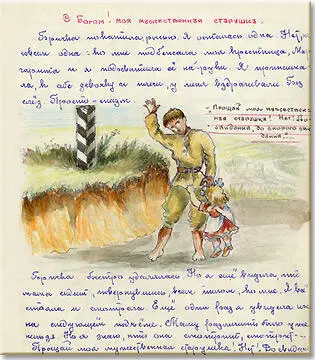 С Богом! моя мужественная старушка.
Бричка покатила ровно. Я осталась одна. Нет, не
совсем одна - ко мне подбежала моя крестница, Мар-
гарита и я подхватила её на руки. Я прижима-
ла к себе девочку и плечи у меня вздрагивали без
слёз. Просто - спазм.
- "Прощай моя мужествен-
ная старушка! Нет! До сви-
дания, до скорого сви-
дания."
Бричка быстро удалялась. Но я ещё видела, что
мама сидит, повернувшись всем телом ко мне. Я всё
стояла и смотрела. Ещё один раз я увидела их
на следующем подъёме. Маму различить было уже
нельзя. Но я знаю, что она смотрит, смотрит...
Прощай моя мужественная старушка, Нет! До свидан